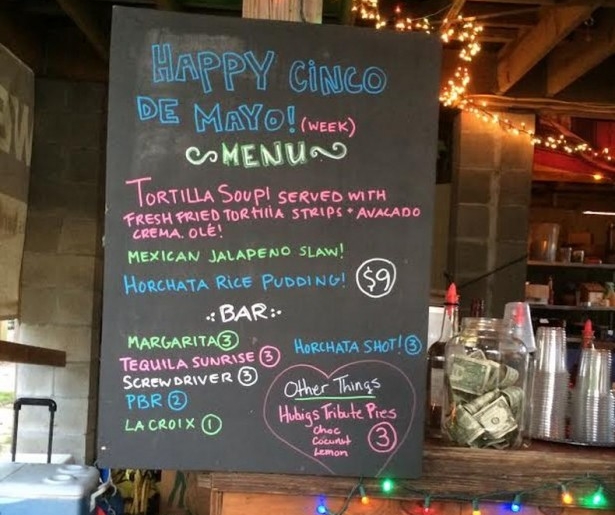 HAPPY CINCO
DE MAYO! (WEEK)
MENU
TORTILLA SOUP! SERVED WITH
FRESH FRIED TORTILLA STRIPS + AVACADO
CREMA. OLÉ!
MEXICAN JALAPENO SLAW!
HORCHATA RICE PUDDING! $9
BAR
MARGARITA 3
TEQUILA SUNRISE 3
SCREWDRIVER 3
PBR 2
LA CROIX 1
HORCHATA SHOT! 3
Other Things
Hubigs Tribute Pies
Choc
Coconut
Lemon
3